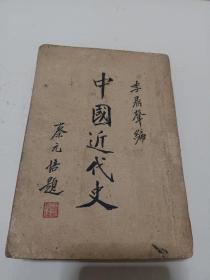 李鼎聲編
中國近代史
蔡元培題